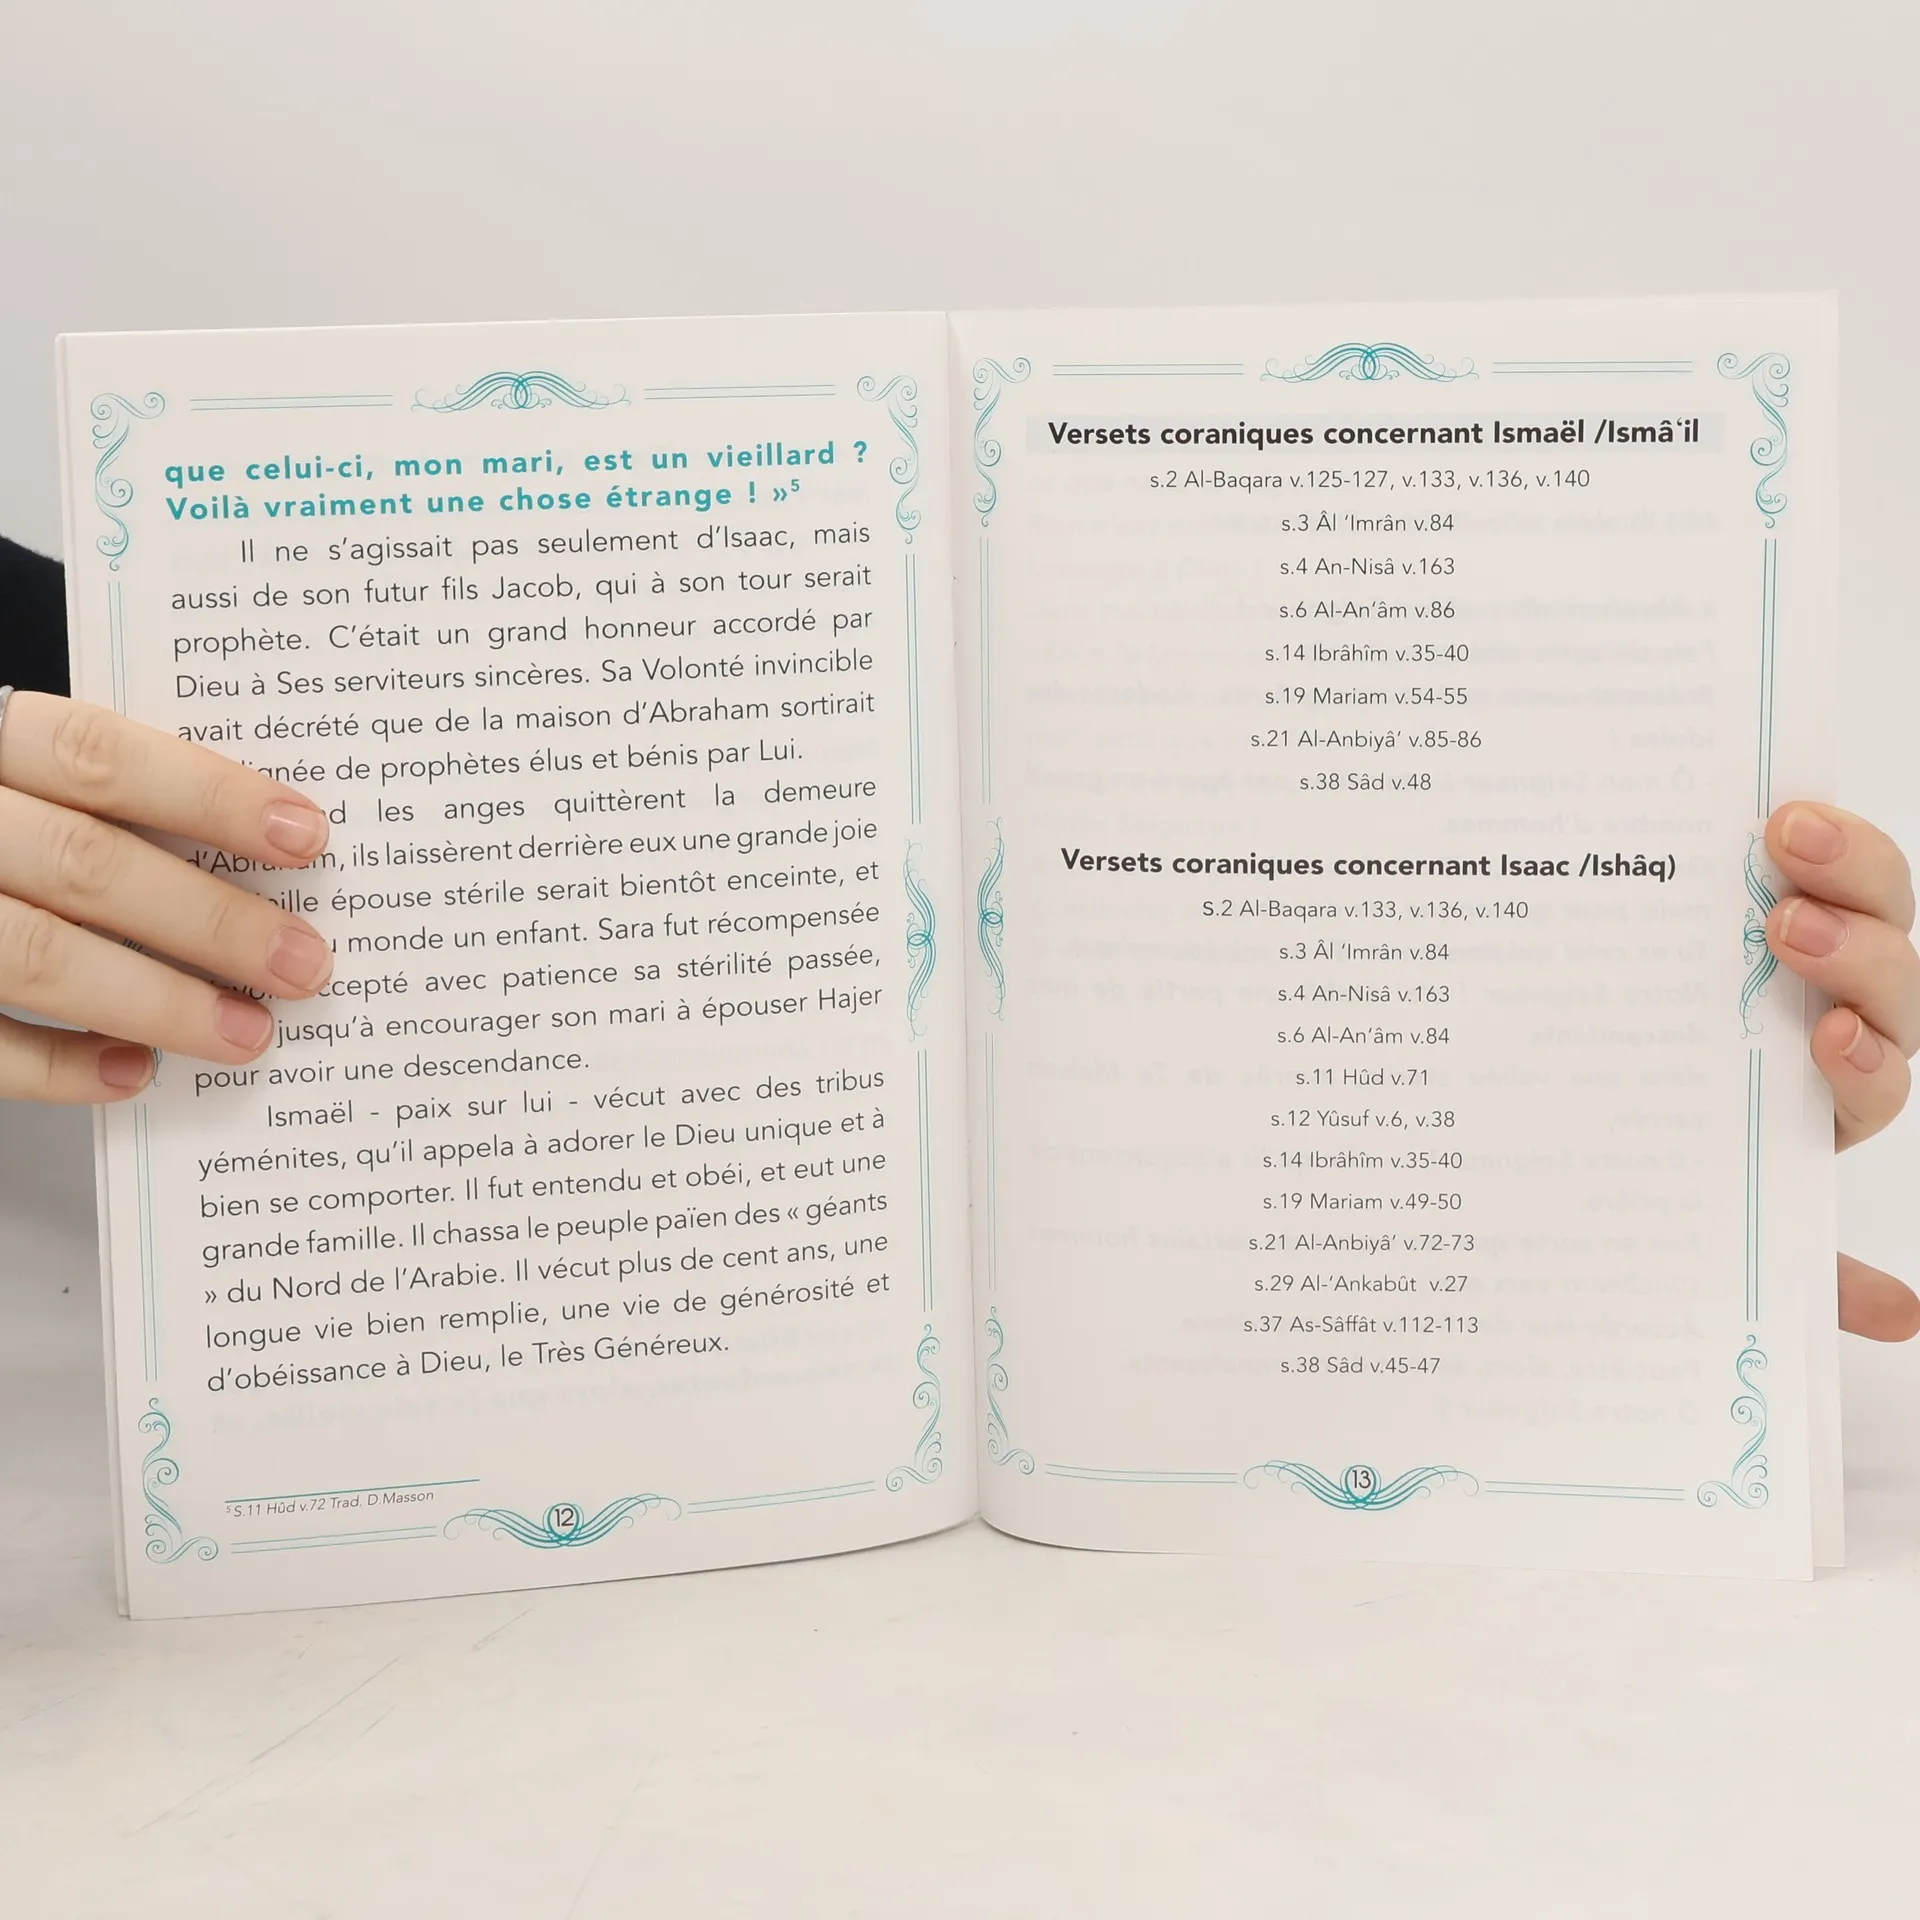 que celui-ci, mon mari, est un vieillard ?
Voilà vraiment une chose étrange ! »⁵
Il ne s'agissait pas seulement d'Isaac, mais
aussi de son futur fils Jacob, qui à son tour serait
prophète. C'était un grand honneur accordé par
Dieu à Ses serviteurs sincères. Sa Volonté invincible
avait décrété que de la maison d'Abraham sortirait
de prophètes élus et bénis par Lui.
les anges quittèrent la demeure
ils laissèrent derrière eux une grande joie
épouse stérile serait bientôt enceinte, et
monde un enfant. Sara fut récompensée
avec patience sa stérilité passée,
jusqu'à encourager son mari à épouser Hajer
pour avoir une descendance.
Ismaël - paix sur lui - vécut avec des tribus
yéménites, qu'il appela à adorer le Dieu unique et à
bien se comporter. Il fut entendu et obéi, et eut une
grande famille. Il chassa le peuple païen des « géants
» du Nord de l'Arabie. Il vécut plus de cent ans, une
longue vie bien remplie, une vie de générosité et
d'obéissance à Dieu, le Très Généreux.
⁵ S.11 Hûd v.72 Trad. D.Masson
12
Versets coraniques concernant Ismaël /Ismâ‘il
s.2 Al-Baqara v.125-127, v.133, v.136, v.140
s.3 Âl ‘Imrân v.84
s.4 An-Nisâ v.163
s.6 Al-An’âm v.86
s.14 Ibrâhîm v.35-40
s.19 Mariam v.54-55
s.21 Al-Anbiyâ’ v.85-86
s.38 Sâd v.48
Versets coraniques concernant Isaac /Ishâq)
S.2 Al-Baqara v.133, v.136, v.140
s.3 Âl ‘Imrân v.84
s.4 An-Nisâ v.163
s.6 Al-An’âm v.84
s.11 Hûd v.71
s.12 Yûsuf v.6, v.38
s.14 Ibrâhîm v.35-40
s.19 Mariam v.49-50
s.21 Al-Anbiyâ’ v.72-73
s.29 Al-‘Ankabût v.27
s.37 As-Sâffât v.112-113
s.38 Sâd v.45-47
13